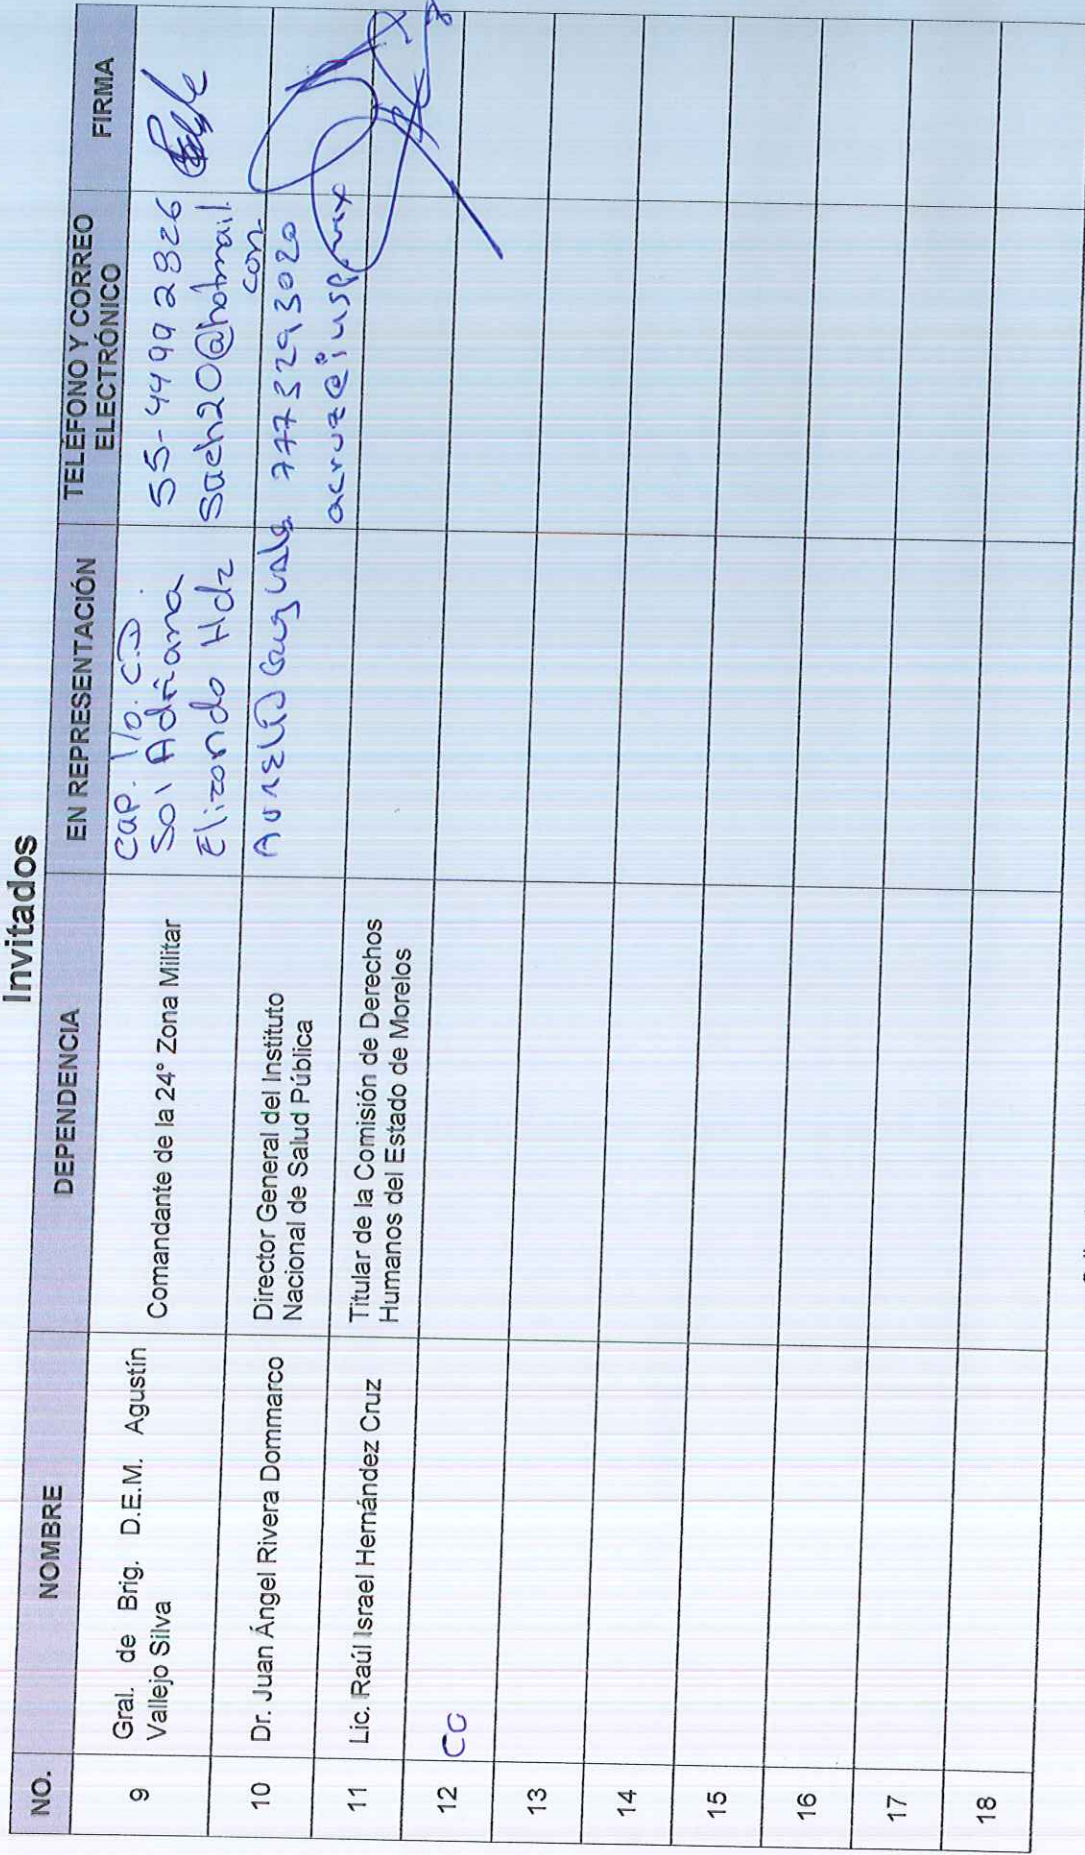 Invitados
NO. NOMBRE DEPENDENCIA EN REPRESENTACIÓN TELÉFONO Y CORREO ELECTRÓNICO FIRMA
9
Gral. de Brig. D.E.M. Agustín
Vallejo Silva
Comandante de la 24° Zona Militar
Cap. 1/o. C.D.
Sol Adriana
Elizondo Hdz
55-44992826
Saeh20@hotmail.
com
10
Dr. Juan Ángel Rivera Dommarco
Director General del Instituto
Nacional de Salud Pública
AURELIO Cruz
7773293020
acruz@insp.mx
11
Lic. Raúl Israel Hernández Cruz
Titular de la Comisión de Derechos
Humanos del Estado de Morelos
12
CC
13
14
15
16
17
18